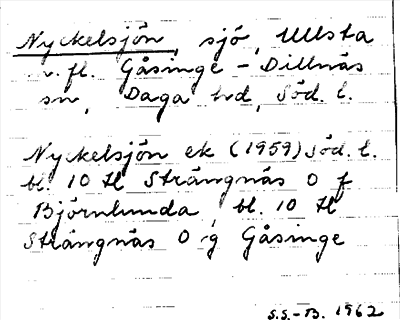 Nyckelsjön, sjö, Ullsta
v. fl. Gåsinge - Dillnäs
sn, Daga hd, Söd. l.
Nyckelsjön ek (1959) Söd. l.
bl. 10 H Strängnäs O f
Björnlunda, bl. 10 H
Strängnäs O g Gåsinge
S.S.-B. 1962